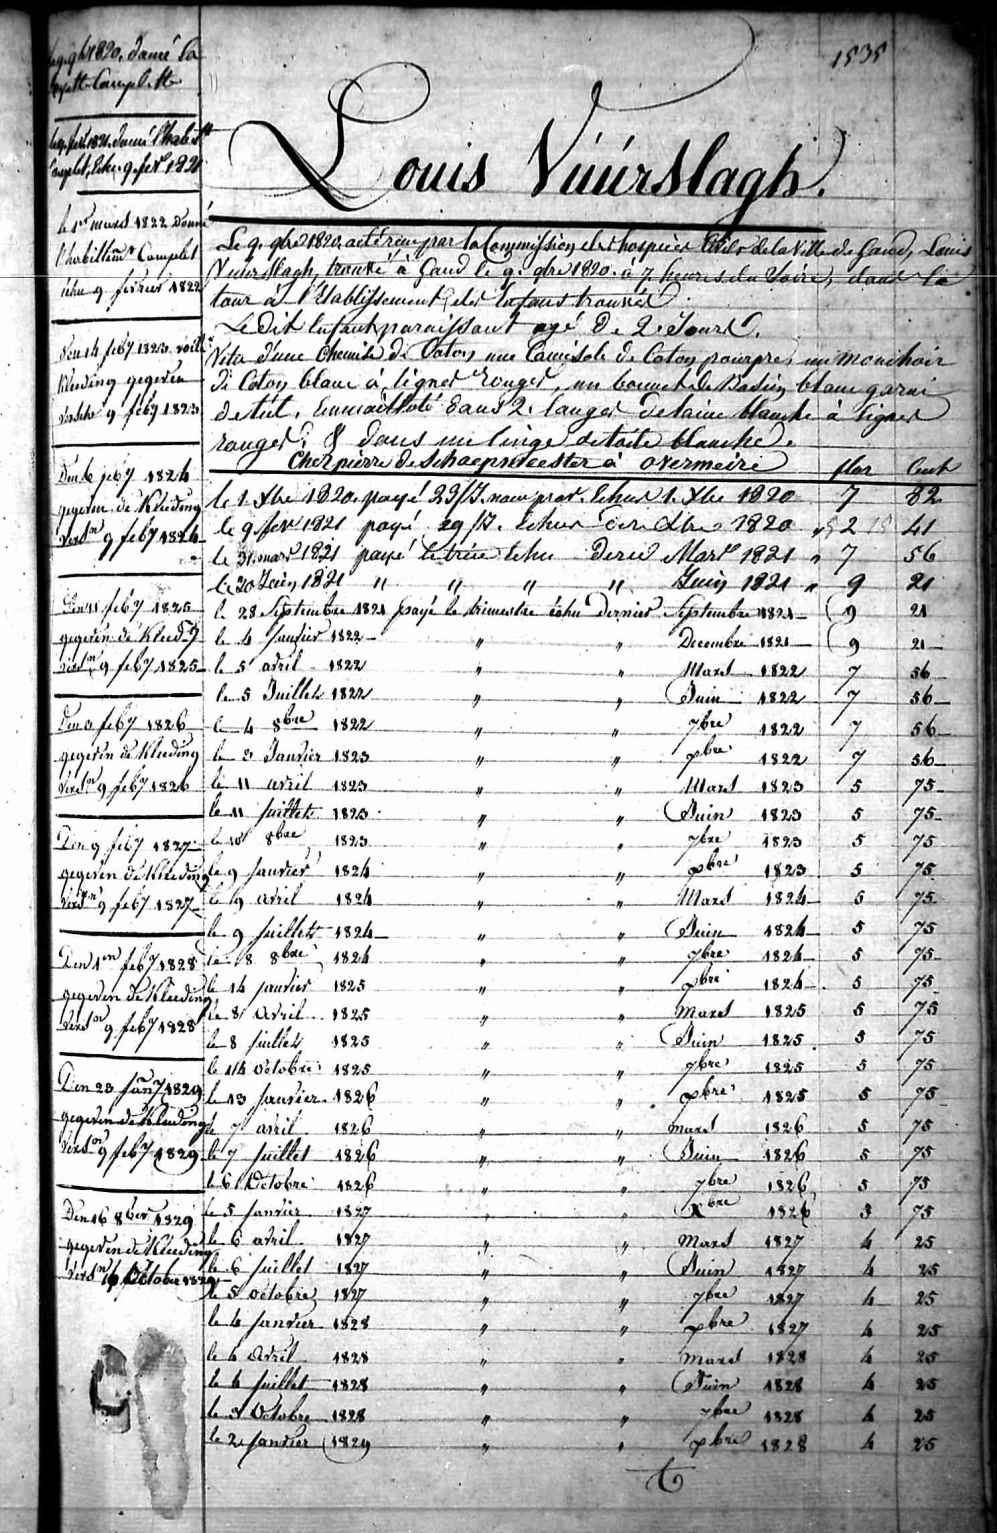 1535
Louis Vúúrslagh.
Le 9. 9bre 1820. a été reçu par la Commission des hospices Civils de la Ville de Gand, Louis
Vuurslagh, trouvé à Gand le 9. 9bre 1820. à 7 heures du Soire, dans la
tour à l'Etablissement des Enfans trouvés.
Le dit Enfant paraissant agé de 2. Jours.
Vetu d'une Chemise de Coton, une Camisole de Coton pourpre, un mouchoir
de Coton blanc à lignes rouges, un bonnet de Basin blanc garni
de tul. Emmailloté dans 2. langes de laine blanche à lignes
rouges, & dans un linge de toile blanche.
Chez pierre de Schaepmeester à overmeire flor Cent
le 1 Xbre 1820. payé 29/J. nour prov. Echus 1. Xbre 1820 7 82
le 9 fevr 1821 payé 29/J. Echus Xbre 1820 2 41
le 31 mars 1821 payé le trim Echu dernier Mars 1821 " 7 56
le 20 Juin 1821 " " " " Juin 1821 " 9 21
le 28 Septembre 1821 payé le trimestre échu dernier Septembre 1821 9 21
le 4 Janvier 1822 " " Decembre 1821 9 21
le 5 avril 1822 " " Mars 1822 7 56
le 5 Juillet 1822 " " Juin 1822 7 56
le 4 8bre 1822 " " 7bre 1822 7 56
le 3 Janvier 1823 " " xbre 1822 7 56
le 11 avril 1823 " " Mars 1823 5 75
le 11 juillet 1823 " " Juin 1823 5 75
le 10 8bre 1823 " " 7bre 1823 5 75
le 9 janvier 1824 " " xbre 1823 5 75
le 9 avril 1824 " " Mars 1824 5 75
le 9 juillet 1824 " " Juin 1824 5 75
le 8 8bre 1824 " " 7bre 1824 5 75
le 14 janvier 1825 " " xbre 1824 5 75
le 8 avril 1825 " " mars 1825 5 75
le 8 juillet 1825 " " Juin 1825 5 75
le 14 octobre 1825 " " 7bre 1825 5 75
le 13 janvier 1826 " " xbre 1825 5 75
le 7 avril 1826 " " mars 1826 5 75
le 7 juillet 1826 " " Juin 1826 5 75
le 6 Octobre 1826 " " 7bre 1826 5 75
le 5 janvier 1827 " " Xbre 1826 5 75
le 6 avril 1827 " " Mars 1827 4 25
le 6 juillet 1827 " " Juin 1827 4 25
le 5 octobre 1827 " " 7bre 1827 4 25
le 4 janvier 1828 " " xbre 1827 4 25
le 4 Avril 1828 " " mars 1828 4 25
le 4 juillet 1828 " " Juin 1828 4 25
le 3 Octobre 1828 " " 7bre 1828 4 25
le 2 janvier 1829 " " xbre 1828 4 25
le 9. 9bre 1820. donné la
Complette
le 9. fevr 1821. donné l'habillt
Complet, Echu 9. fevr 1821
le 1er mars 1822 Donné
l'habillemt Complet
échu 9 fevrier 1822
Den 14 feby 1823
Kleeding gegeven
9 feby 1823
Den 6 feby 1824
gegeven de Kleeding
versn 9 feby 1824
Den 11 feby 1825
gegeven de Kleedg
versn 9 feby 1825
Den 3 feby 1826
gegeven de Kleeding
versn 9 feby 1826
Den 9 feby 1827
gegeven de Kleeding
versn 9 feby 1827
Den 1en feby 1828
gegeven de Kleeding
versn 9 feby 1828
Den 23 Jany 1829
gegeven de Kleeding
versn 9 feby 1829
Den 16 8ber 1829
gegeven de Kleeding
versn 16 Octobre 1829